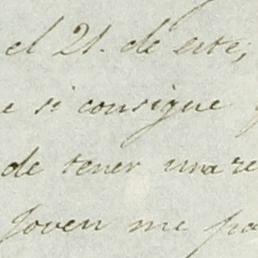 el 21. de este,
e si consigue
de tener una re
Joven me pa